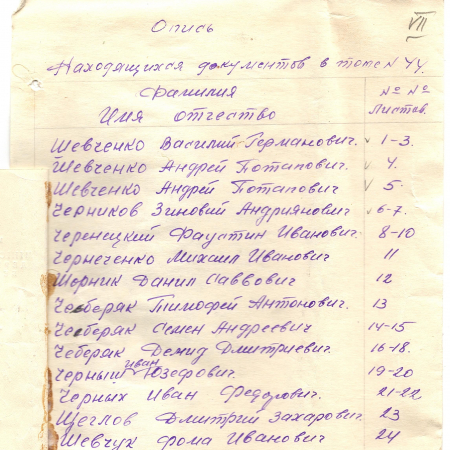 Опись
VII
Находящихся документов в томе N 44.
Фамилия
Имя отчество
№ №
Листов.
Шевченко Василий Германович. v 1-3.
Шевченко Андрей Потапович. v 4.
Шевченко Андрей Потапович v 5.
Черников Зиновий Андриянович v 6-7.
Черенецкий Фаустин Иванович. 8-10
Чернеченко Михаил Иванович 11
Шорник Данил Саввович 12
Чеберяк Тимофей Антонович. 13
Чеберяк Семен Андреевич 14-15
Чеберяк Демид Дмитриевич. 16-18.
Черный Иван Юзефович. 19-20
Черных Иван Федорович. 21-22
Щеглов Дмитрий Захарович. 23
Шевчук Фома Иванович 24